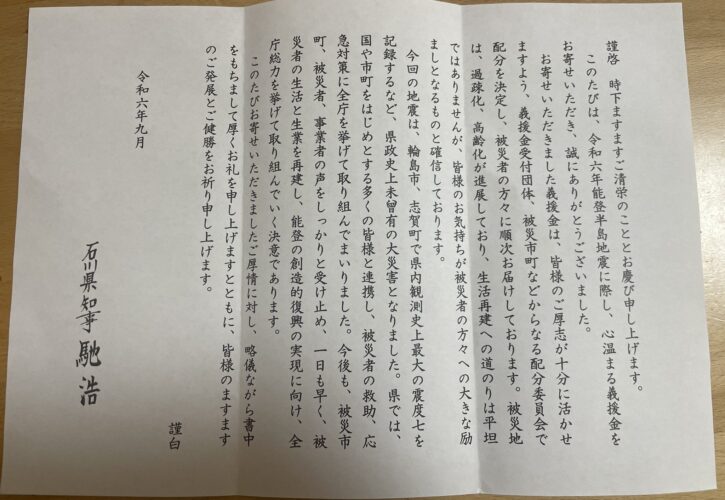 謹啓　時下ますますご清栄のこととお慶び申し上げます。
このたびは、令和六年能登半島地震に際し、心温まる義援金を
お寄せいただき、誠にありがとうございました。
お寄せいただきました義援金は、皆様のご厚志が十分に活かせ
ますよう、義援金受付団体、被災市町などからなる配分委員会で
配分を決定し、被災者の方々に順次お届けしております。被災地
は、過疎化、高齢化が進展しており、生活再建への道のりは平坦
ではありませんが、皆様のお気持ちが被災者の方々への大きな励
ましとなるものと確信しております。
今回の地震は、輪島市、志賀町で県内観測史上最大の震度七を
記録するなど、県政史上未曾有の大災害となりました。県では、
国や市町をはじめとする多くの皆様と連携し、被災者の救助、応
急対策に全庁を挙げて取り組んでまいりました。今後も、被災市
町、被災者、事業者の声をしっかりと受け止め、一日も早く、被
災者の生活と生業を再建し、能登の創造的復興の実現に向け、全
庁総力を挙げて取り組んでいく決意であります。
このたびお寄せいただきましたご厚情に対し、略儀ながら書中
をもちまして厚くお礼を申し上げますとともに、皆様のますます
のご発展とご健勝をお祈り申し上げます。
謹白
令和六年九月
石川県知事 馳浩